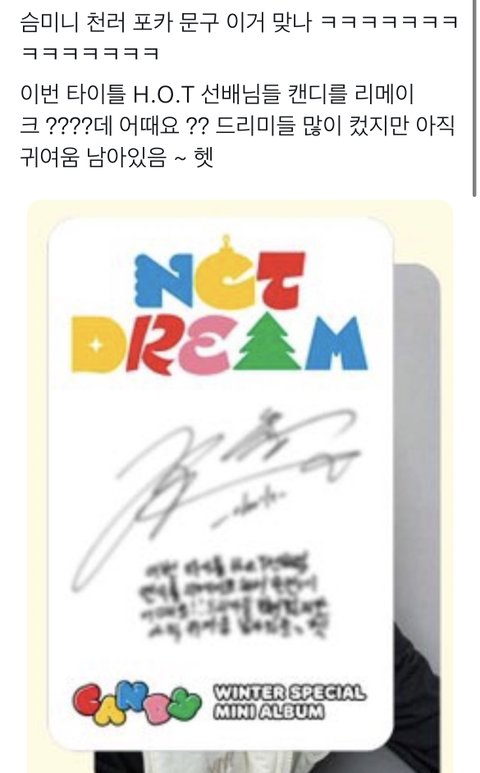 슴미니 천러 포카 문구 이거 맞나 ㅋㅋㅋㅋㅋㅋㅋ
ㅋㅋㅋㅋㅋㅋㅋ
이번 타이틀 H.O.T 선배님들 캔디를 리메이
크 ????데 어때요 ?? 드리미들 많이 컸지만 아직
귀여움 남아있음 ~ 헷
NCT
DREAM
이번 타이틀 H.O.T 선배님들
CANDY WINTER SPECIAL
MINI ALBUM